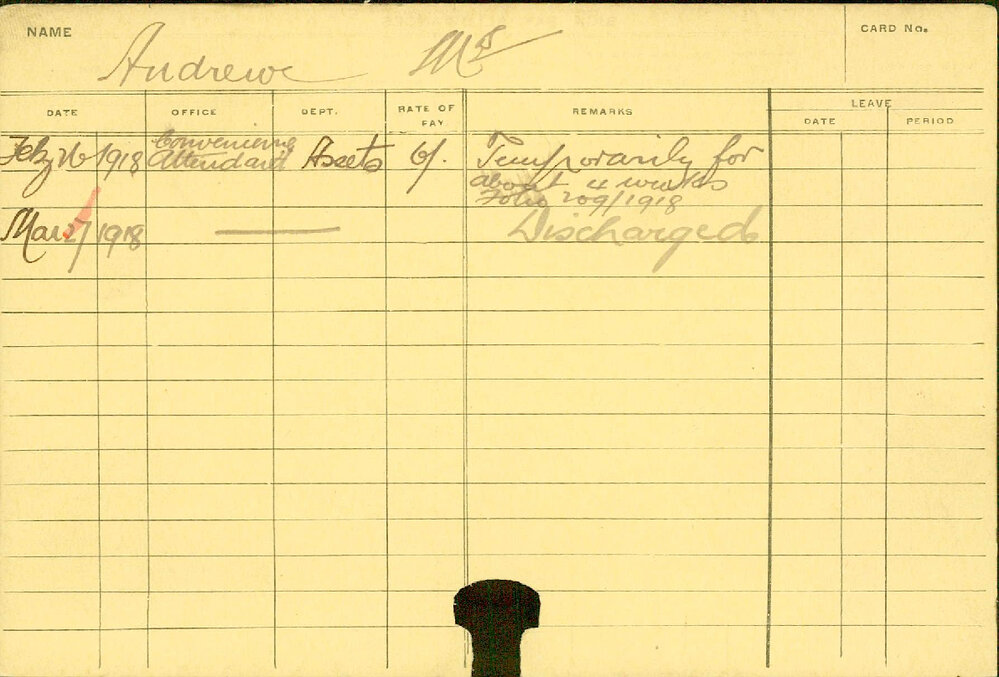 NAME
CARD No.
Andrewe Mrs
DATE OFFICE DEPT. RATE OF PAY REMARKS LEAVE
DATE PERIOD
Feby 26 1918 Convenience Attendant Assets 6/. Temporarily for
about 4 weeks
Folio 209/1918
Mar 27 1918 — Discharged